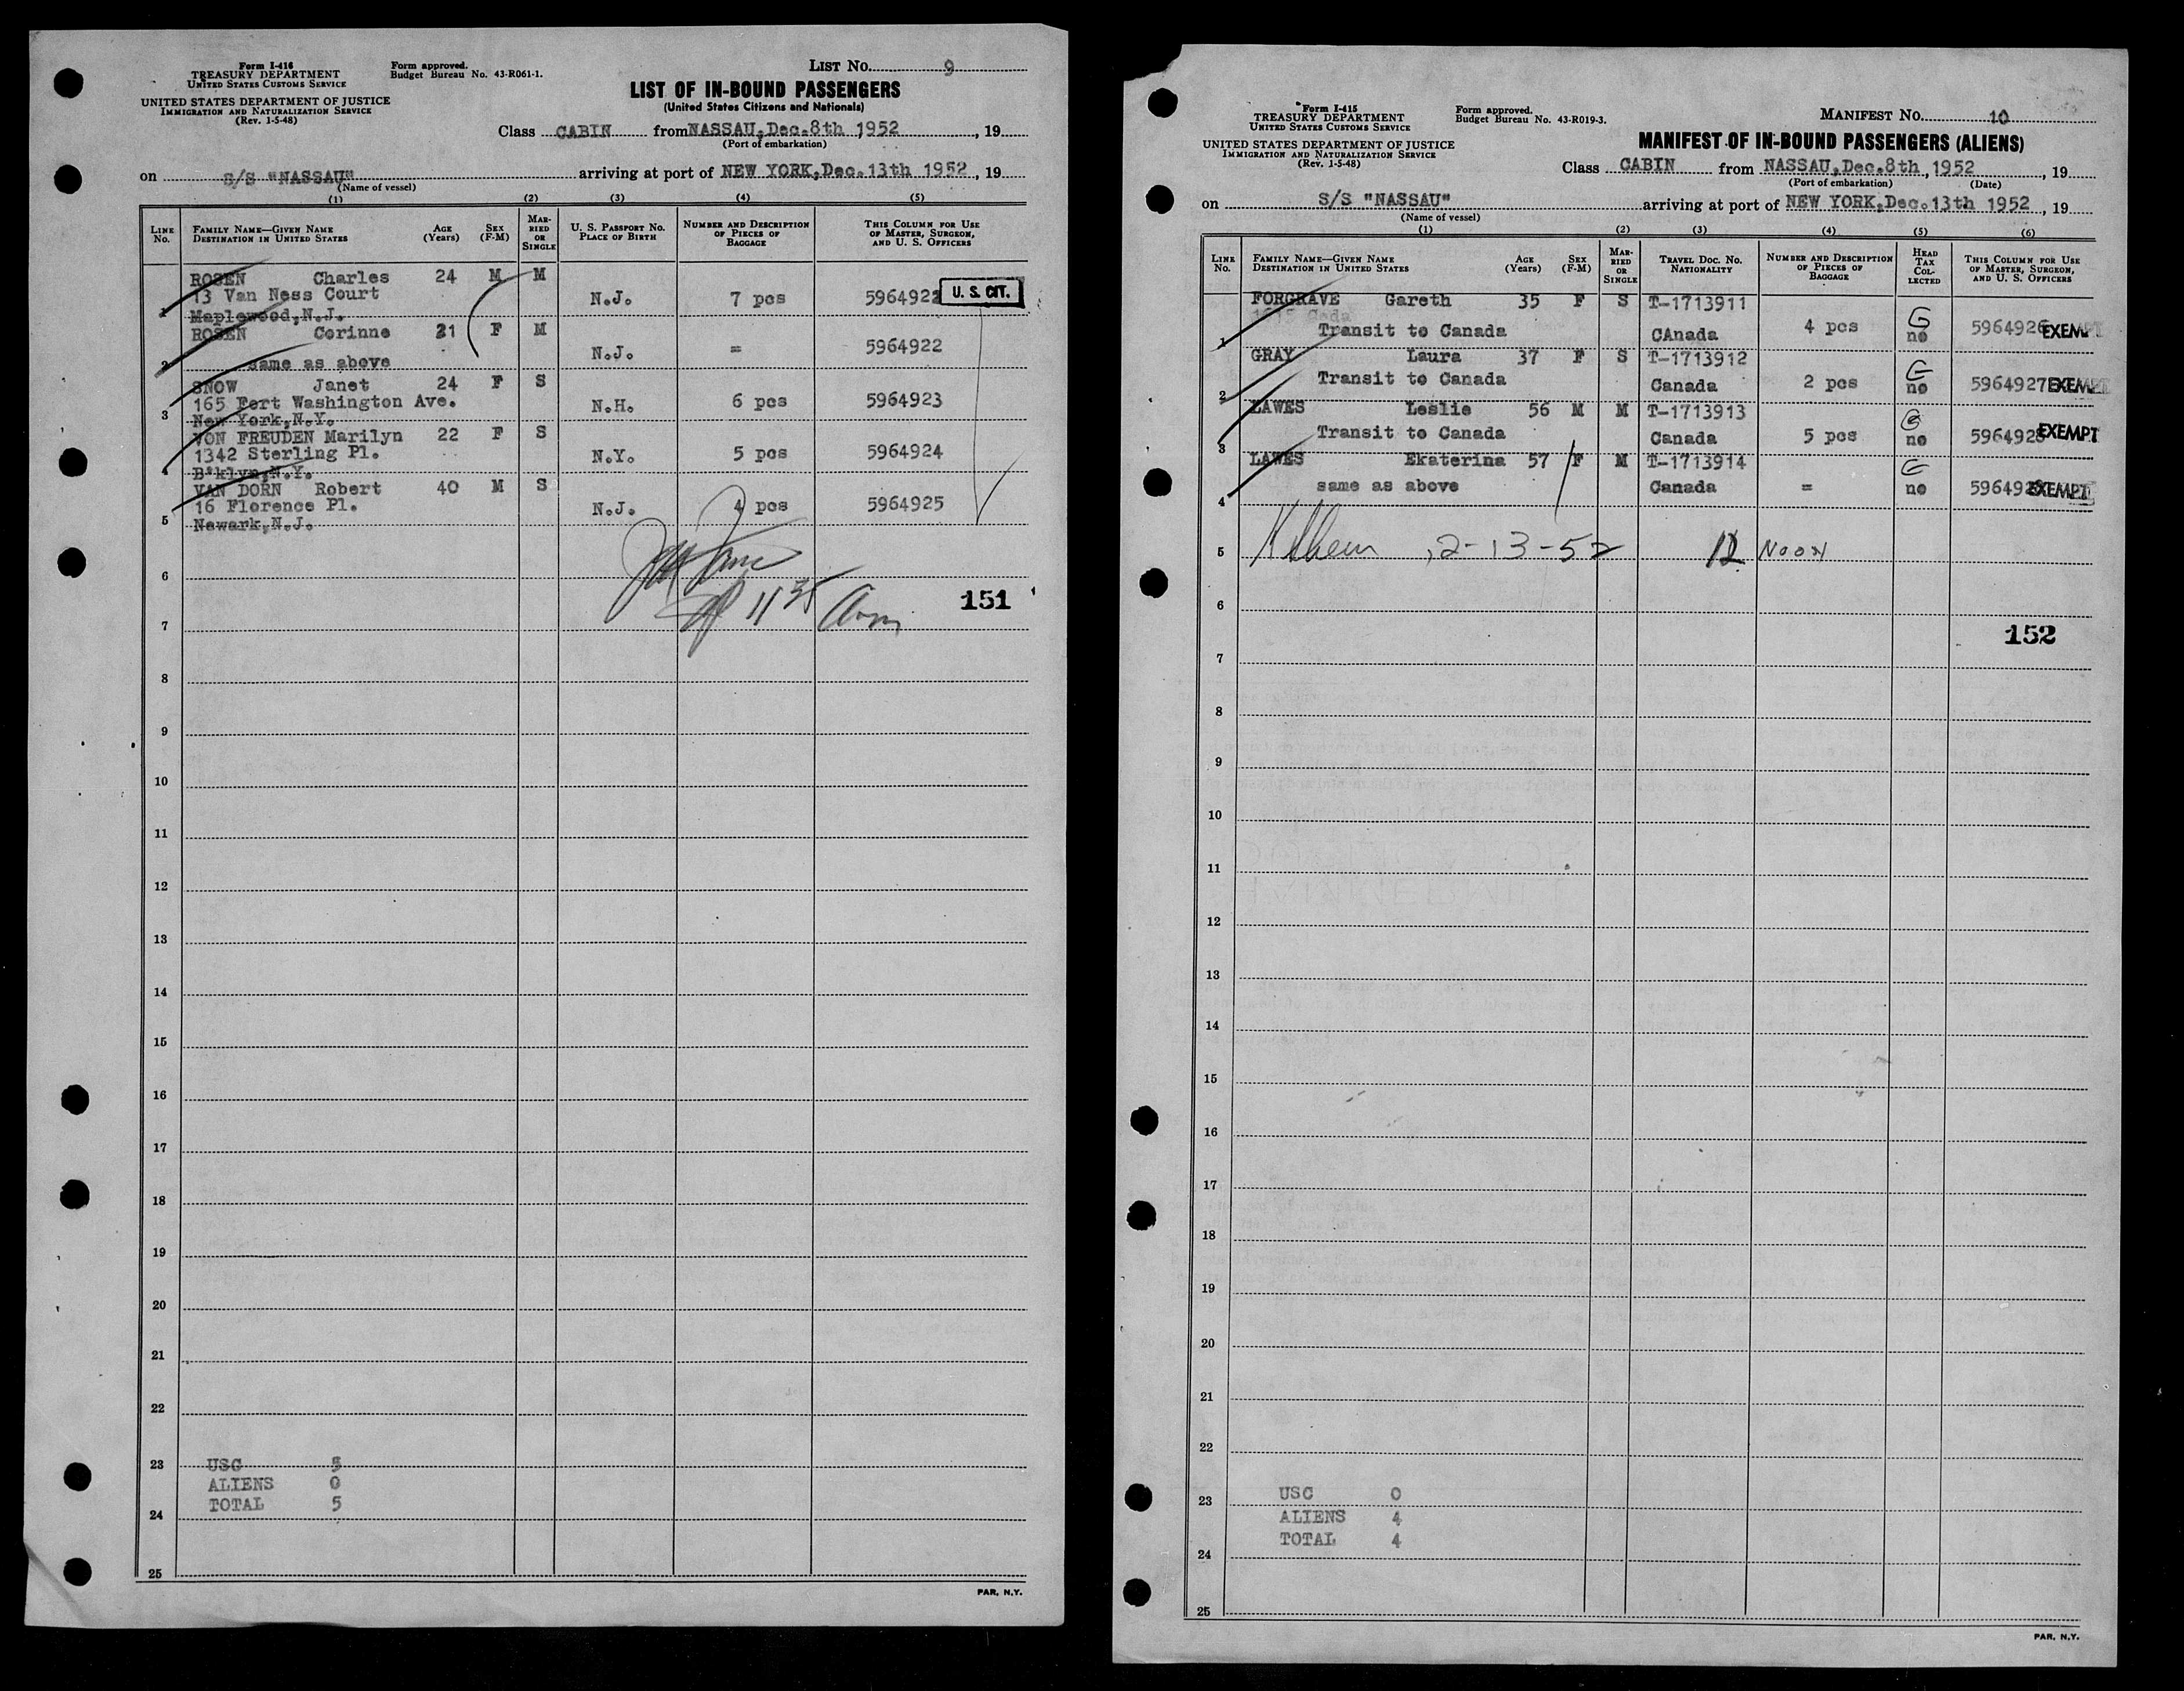 Form I-416
TREASURY DEPARTMENT
UNITED STATES CUSTOMS SERVICE
UNITED STATES DEPARTMENT OF JUSTICE
IMMIGRATION AND NATURALIZATION SERVICE
(Rev. 1-5-48)
Form approved.
Budget Bureau No. 43-R061-1.
LIST NO. 9
LIST OF IN-BOUND PASSENGERS
(United States Citizens and Nationals)
Class CABIN from NASSAU, Dec. 8th 1952, 19
(Port of embarkation)
on S/S "NASSAU" arriving at port of NEW YORK, Dec. 13th 1952, 19
(Name of vessel)
(1) (2) (3) (4) (5)
LINE NO. FAMILY NAME—GIVEN NAME DESTINATION IN UNITED STATES AGE (YEARS) SEX (F-M) MARRIED OR SINGLE U. S. PASSPORT NO. PLACE OF BIRTH NUMBER AND DESCRIPTION OF PIECES OF BAGGAGE THIS COLUMN FOR USE OF MASTER, SURGEON, AND U. S. OFFICERS
ROSEN Charles 24 M M
13 Van Ness Court N.J. 7 pcs 5964922 U. S. CIT.
1 Maplewood, N.J.
ROSEN Corinne 21 F M
N.J. = 5964922
2 same as above
SNOW Janet 24 F S
165 Fort Washington Ave. N.H. 6 pcs 5964923
3 New York, N.Y.
VON FREUDEN Marilyn 22 F S
1342 Sterling Pl. N.Y. 5 pcs 5964924
4 B'klyn, N.Y.
VAN DORN Robert 40 M S
16 Florence Pl. N.J. 4 pcs 5964925
5 Newark, N.J.
6
11 35 am
151
7
8
9
10
11
12
13
14
15
16
17
18
19
20
21
22
23 USC 5
ALIENS 0
TOTAL 5
24
25
PAR. N.Y.
Form I-415
TREASURY DEPARTMENT
UNITED STATES CUSTOMS SERVICE
UNITED STATES DEPARTMENT OF JUSTICE
IMMIGRATION AND NATURALIZATION SERVICE
(Rev. 1-5-48)
Form approved.
Budget Bureau No. 43-R019-3.
MANIFEST NO. 10
MANIFEST OF IN-BOUND PASSENGERS (ALIENS)
Class CABIN from NASSAU, Dec. 8th, 1952, 19
(Port of embarkation) (Date)
on S/S "NASSAU" arriving at port of NEW YORK, Dec. 13th 1952, 19
(Name of vessel)
(1) (2) (3) (4) (5) (6)
LINE NO. FAMILY NAME—GIVEN NAME DESTINATION IN UNITED STATES AGE (YEARS) SEX (F-M) MARRIED OR SINGLE TRAVEL DOC. NO. NATIONALITY NUMBER AND DESCRIPTION OF PIECES OF BAGGAGE HEAD TAX COLLECTED THIS COLUMN FOR USE OF MASTER, SURGEON, AND U. S. OFFICERS
FORGRAVE Gareth 35 F S T-1713911
1 Transit to Canada CAnada 4 pcs G no 5964926 EXEMPT
GRAY Laura 37 F S T-1713912
2 Transit to Canada Canada 2 pcs G no 5964927 EXEMPT
LAWES Leslie 56 M M T-1713913
3 Transit to Canada Canada 5 pcs G no 5964928 EXEMPT
LAWES Ekaterina 57 F M T-1713914
4 same as above Canada = G no 596492 EXEMPT
5 12-13-52 12 Noon
6
152
7
8
9
10
11
12
13
14
15
16
17
18
19
20
21
22
USC 0
23
ALIENS 4
TOTAL 4
24
25
PAR. N.Y.